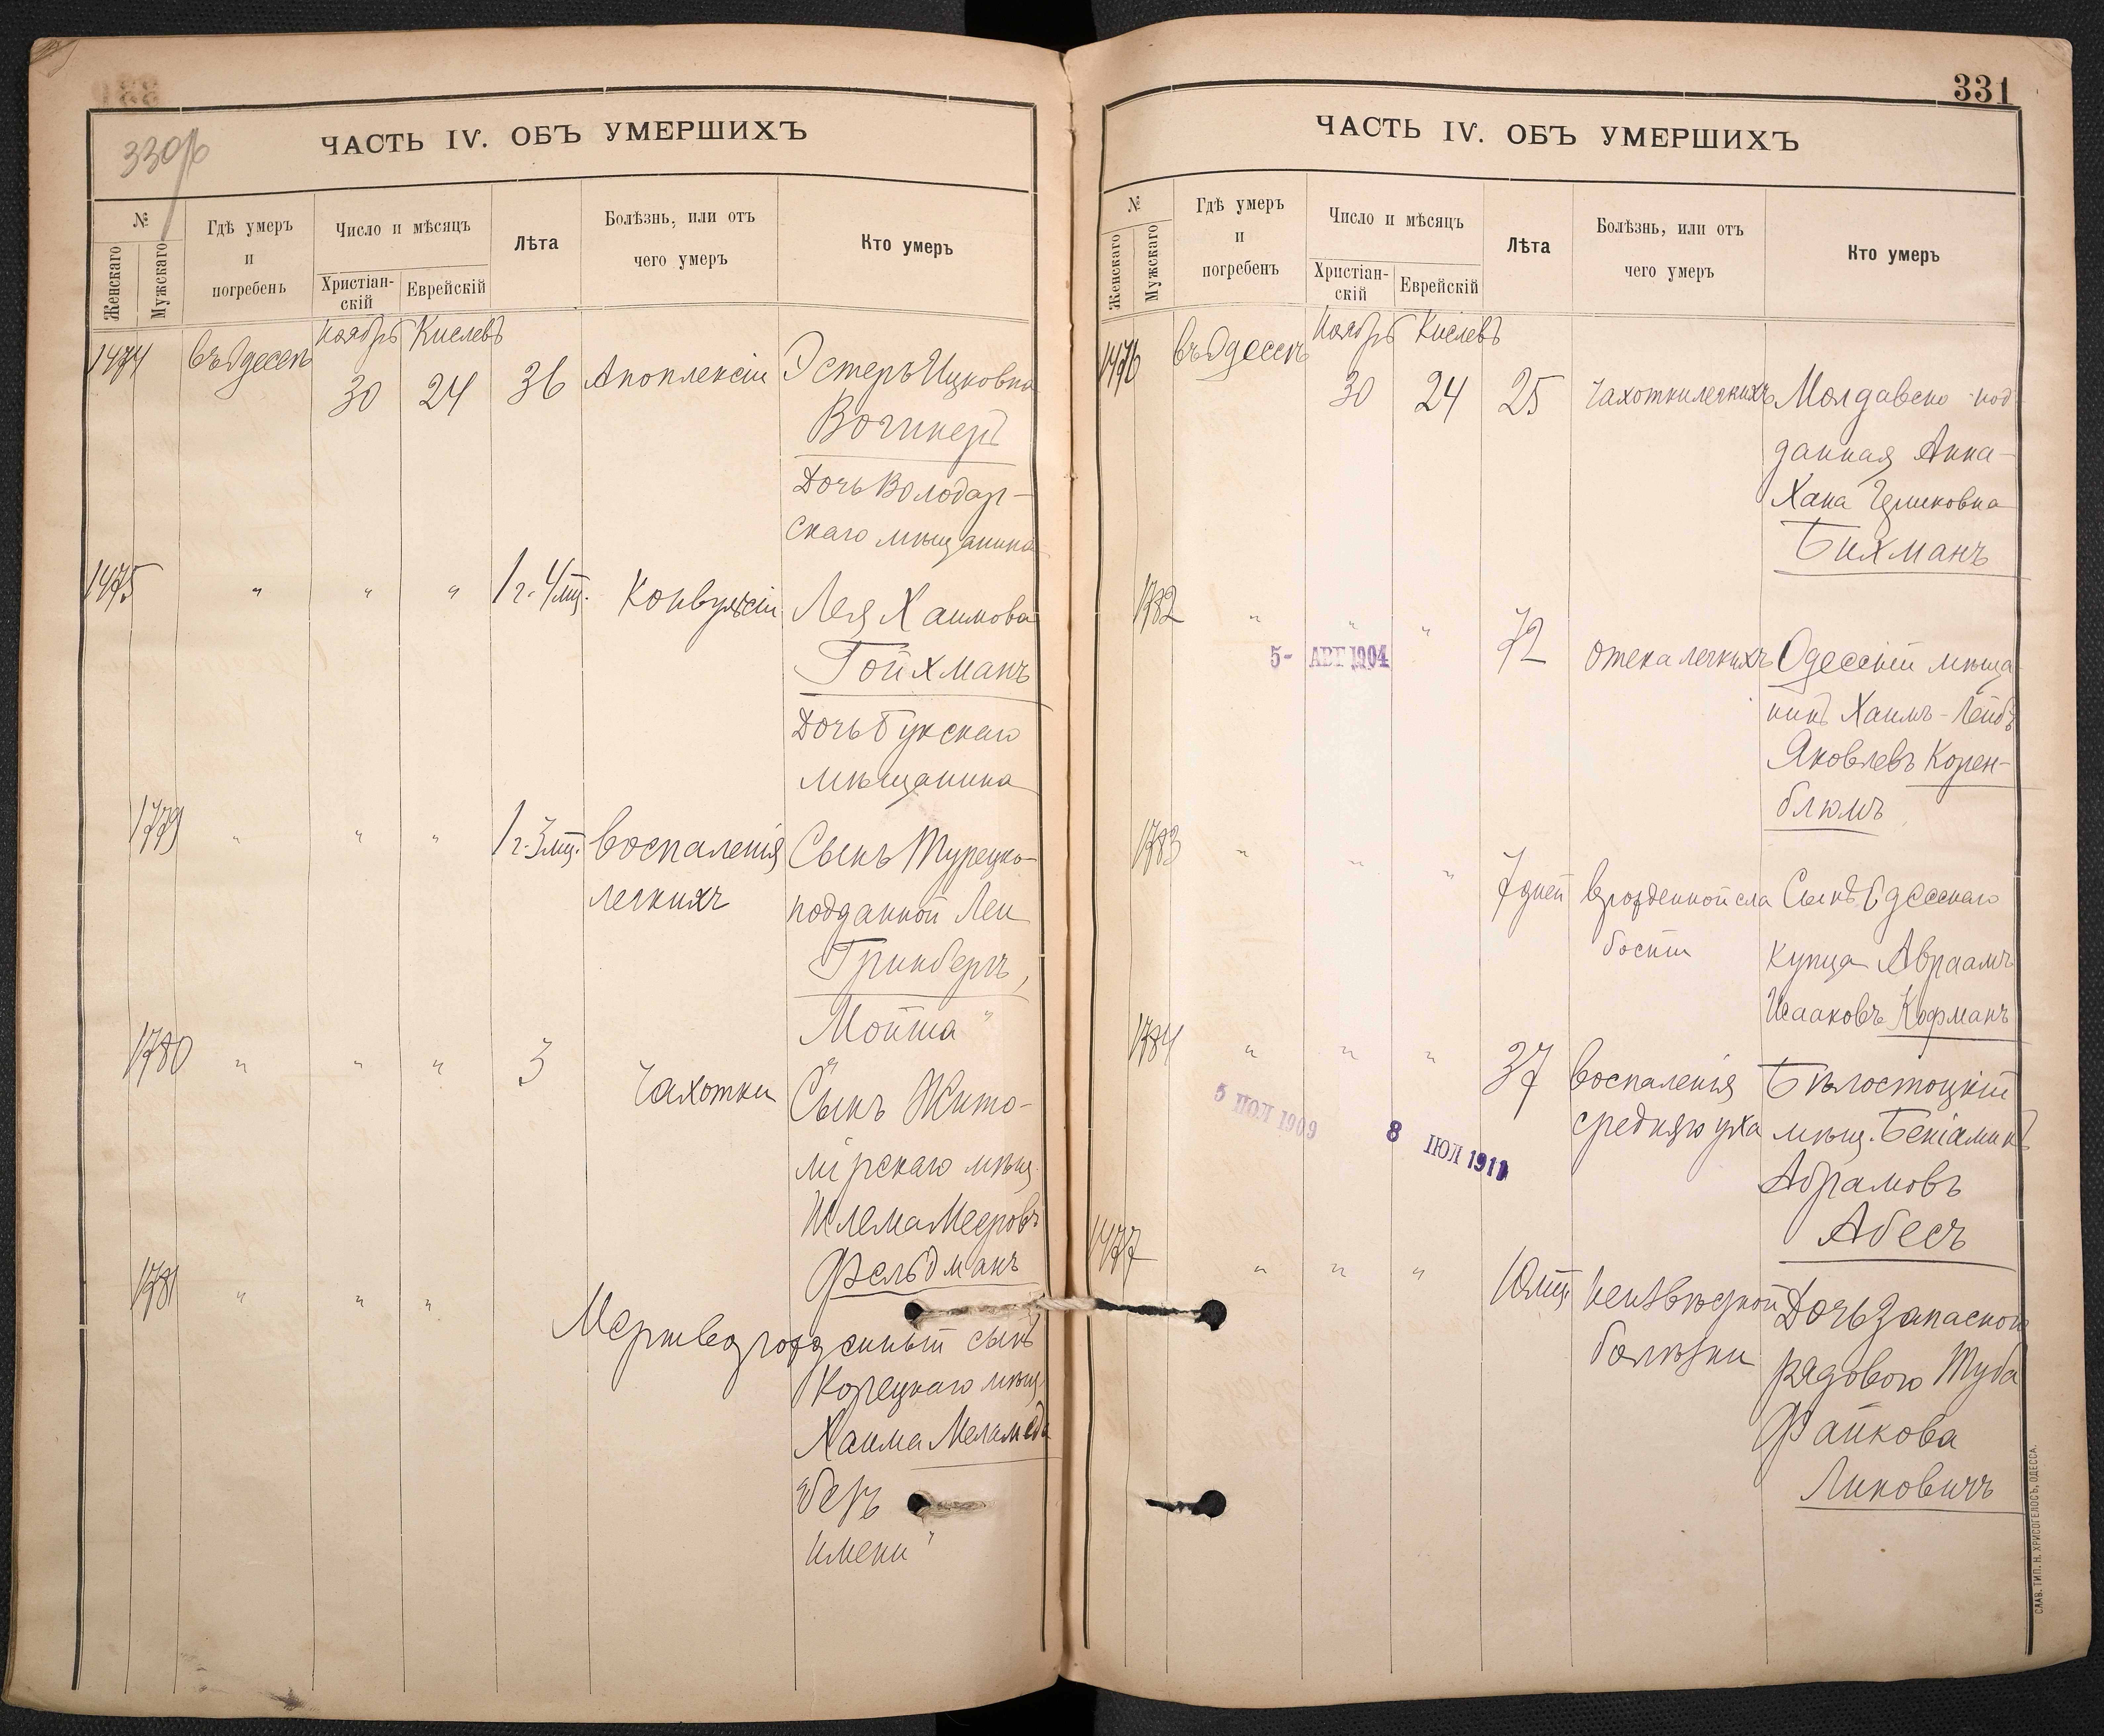 330 об
ЧАСТЬ IV. ОБЪ УМЕРШИХЪ
№
Женскаго
Мужскаго
Гдѣ умеръ
и
погребенъ
Число и мѣсяцъ
Христіан-
скій
Еврейскій
Лѣта
Болѣзнь, или отъ
чего умеръ
Кто умеръ
Ноябрь Кислевъ
1474 въ Одессѣ 30 24 36 Апоплексіи Эстеръ Ицковна
Вогинеръ
Дочь Володар-
скаго мѣщанина
1475 " " " 1 г. 4 мц. Конвульсіи Лея Хаимова
Гойхманъ
Дочь Букскаго
мѣщанина
1779 " " " 1 г. 3 мц. Воспаленія Сынъ Турецко-
легкихъ подданной Леи
Гринбергъ,
Мойша "
1780 " " " 3 Чахотки Сынъ Жито-
мірскаго мѣщ.
Шлема Мееровъ
Фельдманъ
1781 " " "
Мертворожденный сынъ
Корецкаго мѣщ.
Хаима Меламеда
"безъ
имени"
331
ЧАСТЬ IV. ОБЪ УМЕРШИХЪ
№
Женскаго
Мужскаго
Гдѣ умеръ
и
погребенъ
Число и мѣсяцъ
Христіан-
скій
Еврейскій
Лѣта
Болѣзнь, или отъ
чего умеръ
Кто умеръ
Ноябрь Кислевъ
1476 въ Одессѣ 30 24 25 Чахотки легкихъ Молдавско-под
данная Анна-
Хана
Бихманъ
1782 " " " 72 Отека легкихъ Одесскій мѣща
5- АВГ 1904
нинъ Хаимъ-Лейбъ
Яковлевъ Корен-
блюмъ
1783 " " " 7 дней врожденной сла Сынъ Одесскаго
бости купца Авраамъ
Исааковъ Кофманъ
1784 " " " 37 Воспаленія Бѣлостоцкій
средняго уха мѣщ. Беніаминъ
5 ІЮЛ 1909
8 ІЮЛ 1911
Абрамовъ
Абесъ
1477 " " " 10 мц неизвѣстной Дочь запасного
болѣзни рядового Туба
Файкова
Линовичъ
СЛАВ. ТИП. Н. ХРИСОГЕЛОСЪ, ОДЕССА.